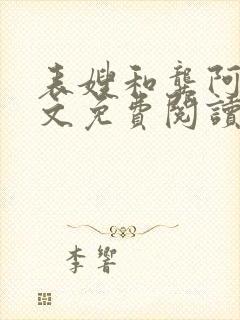 表嫂和龚阿
文免費閱讀
李響